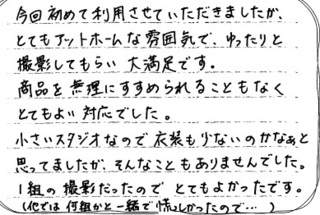 今回初めて利用させていただきましたが、
とてもアットホームな雰囲気で、ゆったりと
撮影してもらい大満足です。
商品を無理にすすめられることもなく
とてもよい対応でした。
小さいスタジオなので衣装も少ないのかなぁと
思ってましたが、そんなこともありませんでした。
1組の撮影だったのでとてもよかったです。
(他では何組かと一緒で慌しかったので…)